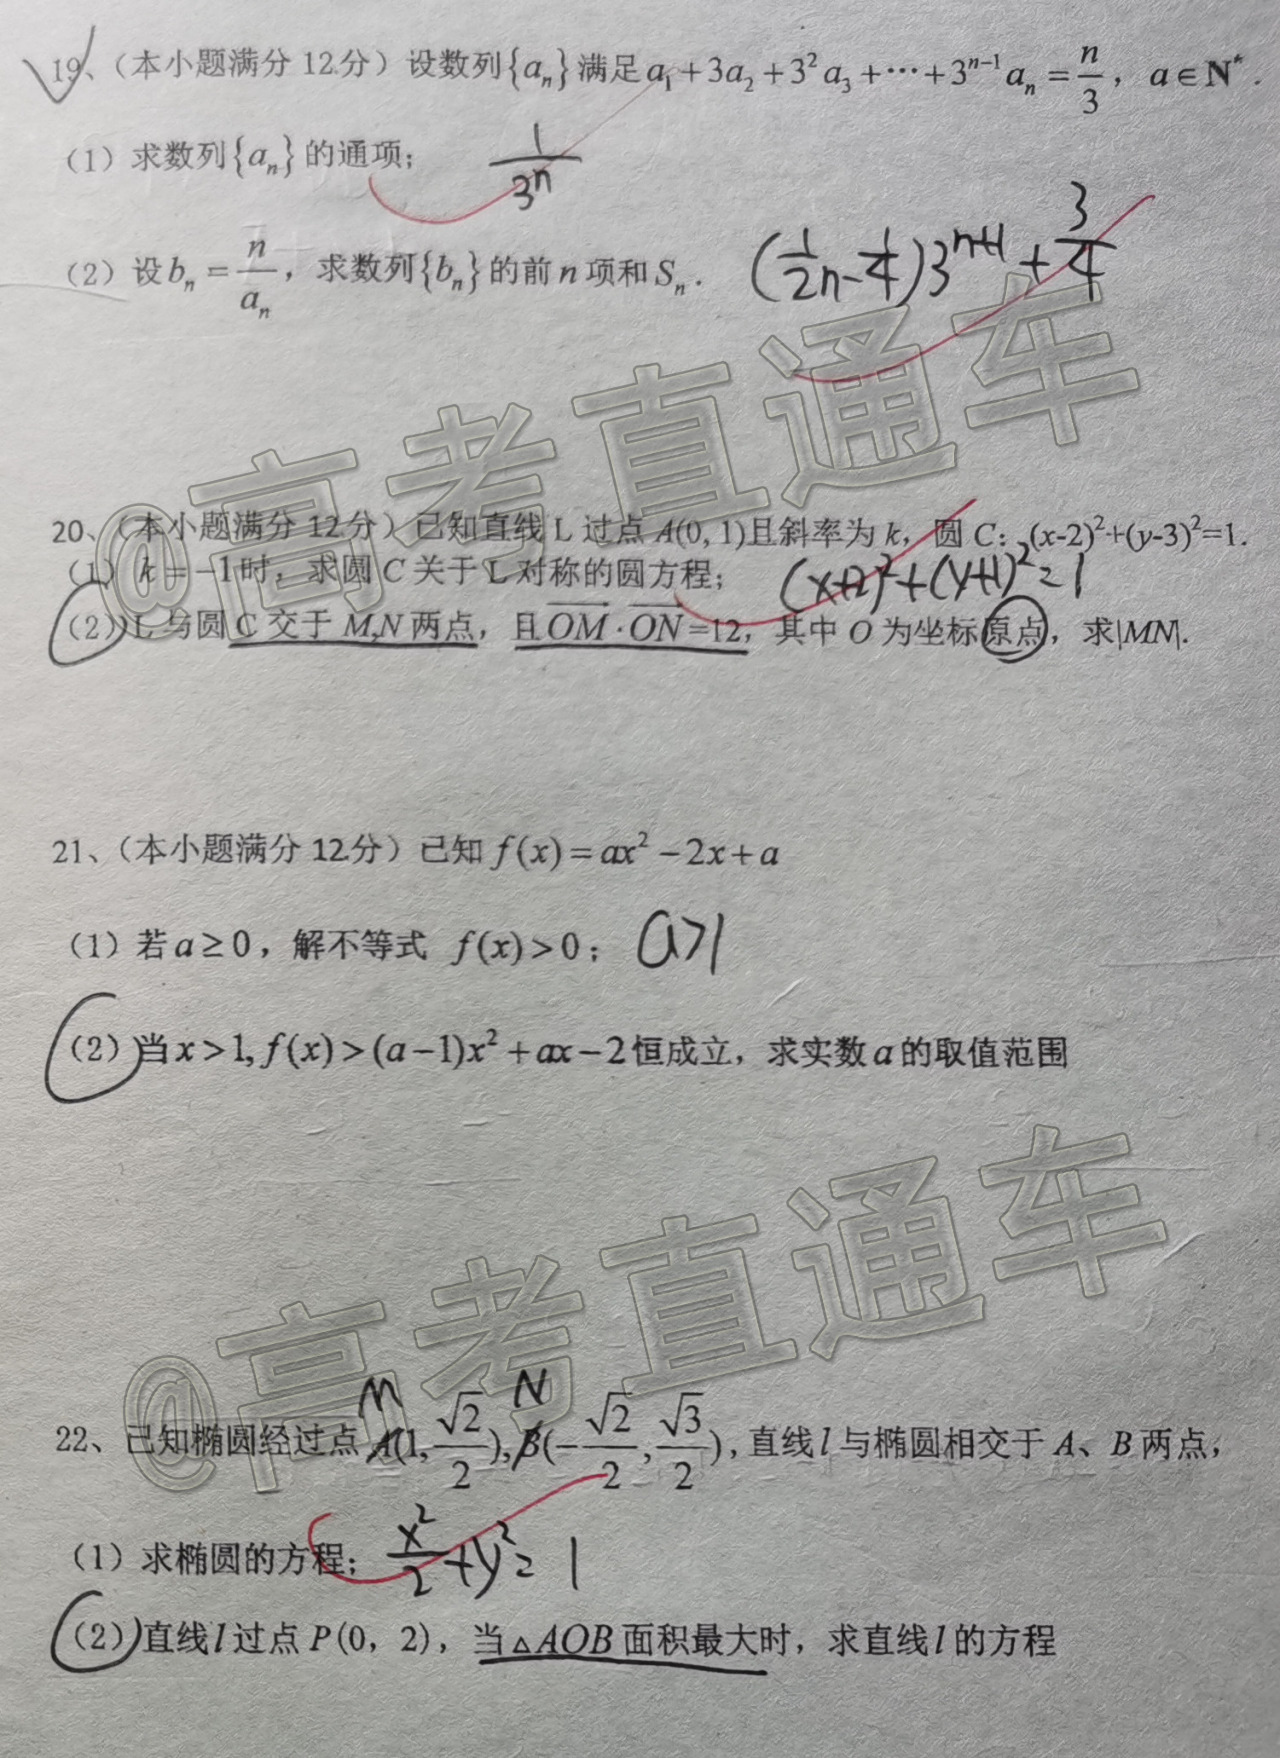 19、（本小题满分 12.分）设数列{aₙ}满足 a₁ + 3a₂ + 3²a₃ + ⋯ + 3ⁿ⁻¹aₙ = n/3， a ∈ N*．
（1）求数列{aₙ}的通项； 1/3ⁿ
（2）设 bₙ = n/aₙ，求数列{bₙ}的前 n 项和 Sₙ． (1/2n - 1/4)3ⁿ⁺¹ + 3/4
@高考直通车
20、（本小题满分 12 分）已知直线 L 过点 A(0, 1)且斜率为 k，圆 C：(x-2)²+(y-3)²=1．
（1） k = −1 时，求圆 C 关于 L 对称的圆方程； (x+2)²+(y+1)²=1
（2）L 与圆 C 交于 M,N 两点，且OM·ON=12，其中 O 为坐标原点，求|MN|．
21、（本小题满分 12.分）已知 f(x) = ax² − 2x + a
（1）若 a ≥ 0，解不等式 f(x) > 0； a>1
（2）当 x > 1, f(x) > (a−1)x² + ax − 2 恒成立，求实数 a 的取值范围
@高考直通车
M N
22、已知椭圆经过点 A(1, √2/2), B(−√2/2, √3/2)，直线 l 与椭圆相交于 A、B 两点，
（1）求椭圆的方程； x²/2 + y² = 1
（2）直线 l 过点 P(0，2)，当△AOB 面积最大时，求直线 l 的方程